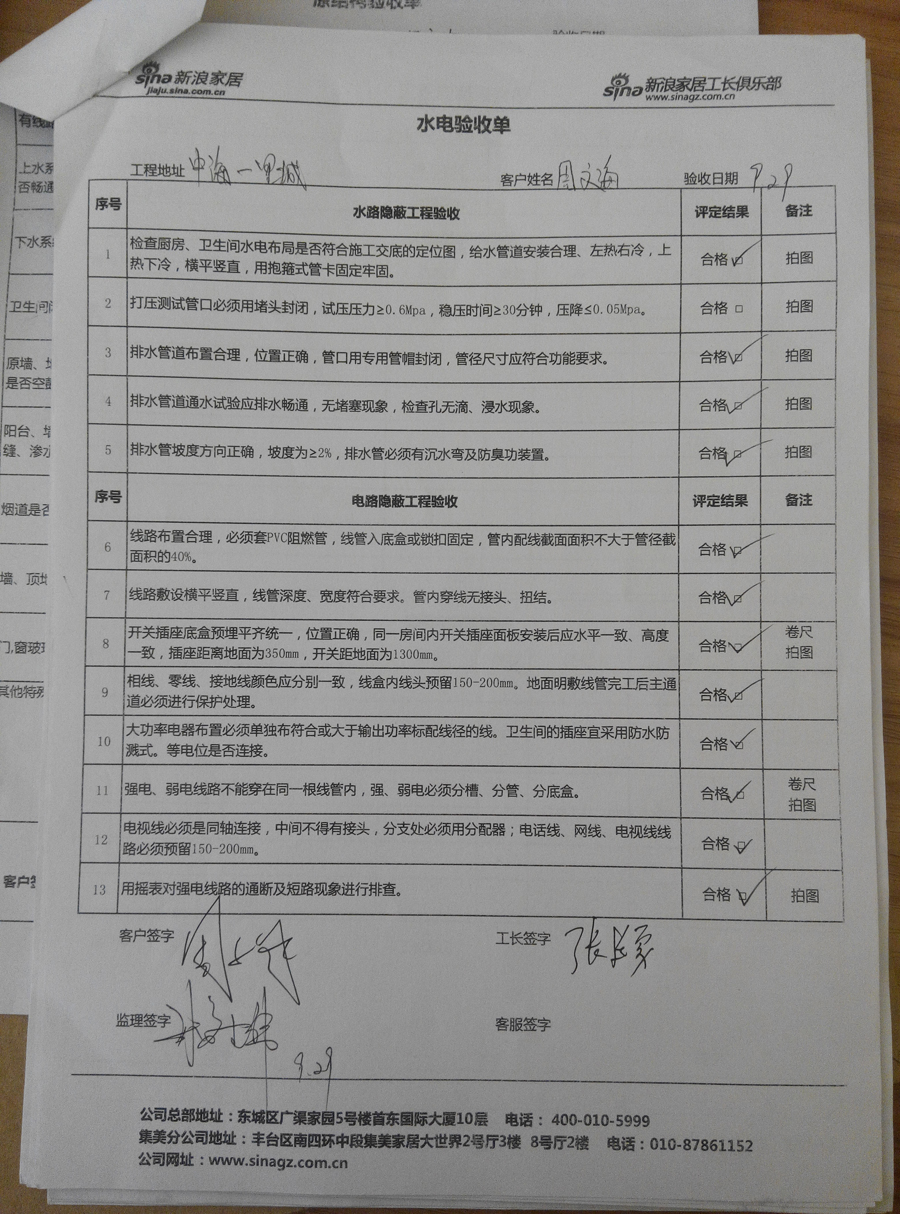 原结构验收单
验收日期
sina新浪家居
jiaju.sina.com.cn
sina新浪家居工长俱乐部
www.sinagz.com.cn
水电验收单
工程地址 中海一里城 客户姓名 周文海 验收日期 9.29
序号 水路隐蔽工程验收 评定结果 备注
1 检查厨房、卫生间水电布局是否符合施工交底的定位图，给水管道安装合理、左热右冷，上
热下冷，横平竖直，用抱箍式管卡固定牢固。 合格☑ 拍图
2 打压测试管口必须用堵头封闭，试压压力≥0.6Mpa，稳压时间≥30分钟，压降≤0.05Mpa。 合格□ 拍图
3 排水管道布置合理，位置正确，管口用专用管帽封闭，管径尺寸应符合功能要求。 合格☑ 拍图
4 排水管道通水试验应排水畅通，无堵塞现象，检查孔无滴、浸水现象。 合格☑ 拍图
5 排水管坡度方向正确，坡度为≥2%，排水管必须有沉水弯及防臭功装置。 合格☑ 拍图
序号 电路隐蔽工程验收 评定结果 备注
6 线路布置合理，必须套PVC阻燃管，线管入底盒或锁扣固定，管内配线截面面积不大于管径截
面积的40%。 合格☑
7 线路敷设横平竖直，线管深度、宽度符合要求。管内穿线无接头、扭结。 合格☑
8 开关插座底盒预埋平齐统一，位置正确，同一房间内开关插座面板安装后应水平一致、高度
一致，插座距离地面为350mm，开关距地面为1300mm。 合格☑ 卷尺
拍图
9 相线、零线、接地线颜色应分别一致，线盒内线头预留150-200mm。地面明敷线管完工后主通
道必须进行保护处理。 合格☑
10 大功率电器布置必须单独布符合或大于输出功率标配线径的线。卫生间的插座宜采用防水防
溅式。等电位是否连接。 合格☑
11 强电、弱电线路不能穿在同一根线管内，强、弱电必须分槽、分管、分底盒。 合格☑ 卷尺
拍图
12 电视线必须是同轴连接，中间不得有接头，分支处必须用分配器；电话线、网线、电视线线
路必须预留150-200mm。 合格☑
13 用摇表对强电线路的通断及短路现象进行排查。 合格☑ 拍图
客户签字 工长签字
监理签字 客服签字
9.29
公司总部地址：东城区广渠家园5号楼首东国际大厦10层 电话： 400-010-5999
集美分公司地址：丰台区南四环中段集美家居大世界2号厅3楼 8号厅2楼 电话：010-87861152
公司网址：www.sinagz.com.cn
有线
上水系
否畅通
下水系
卫生间
原墙、
是否空
阳台、墙
缝、渗水
烟道是否
墙、顶地
门,窗玻
其他特殊
客户签